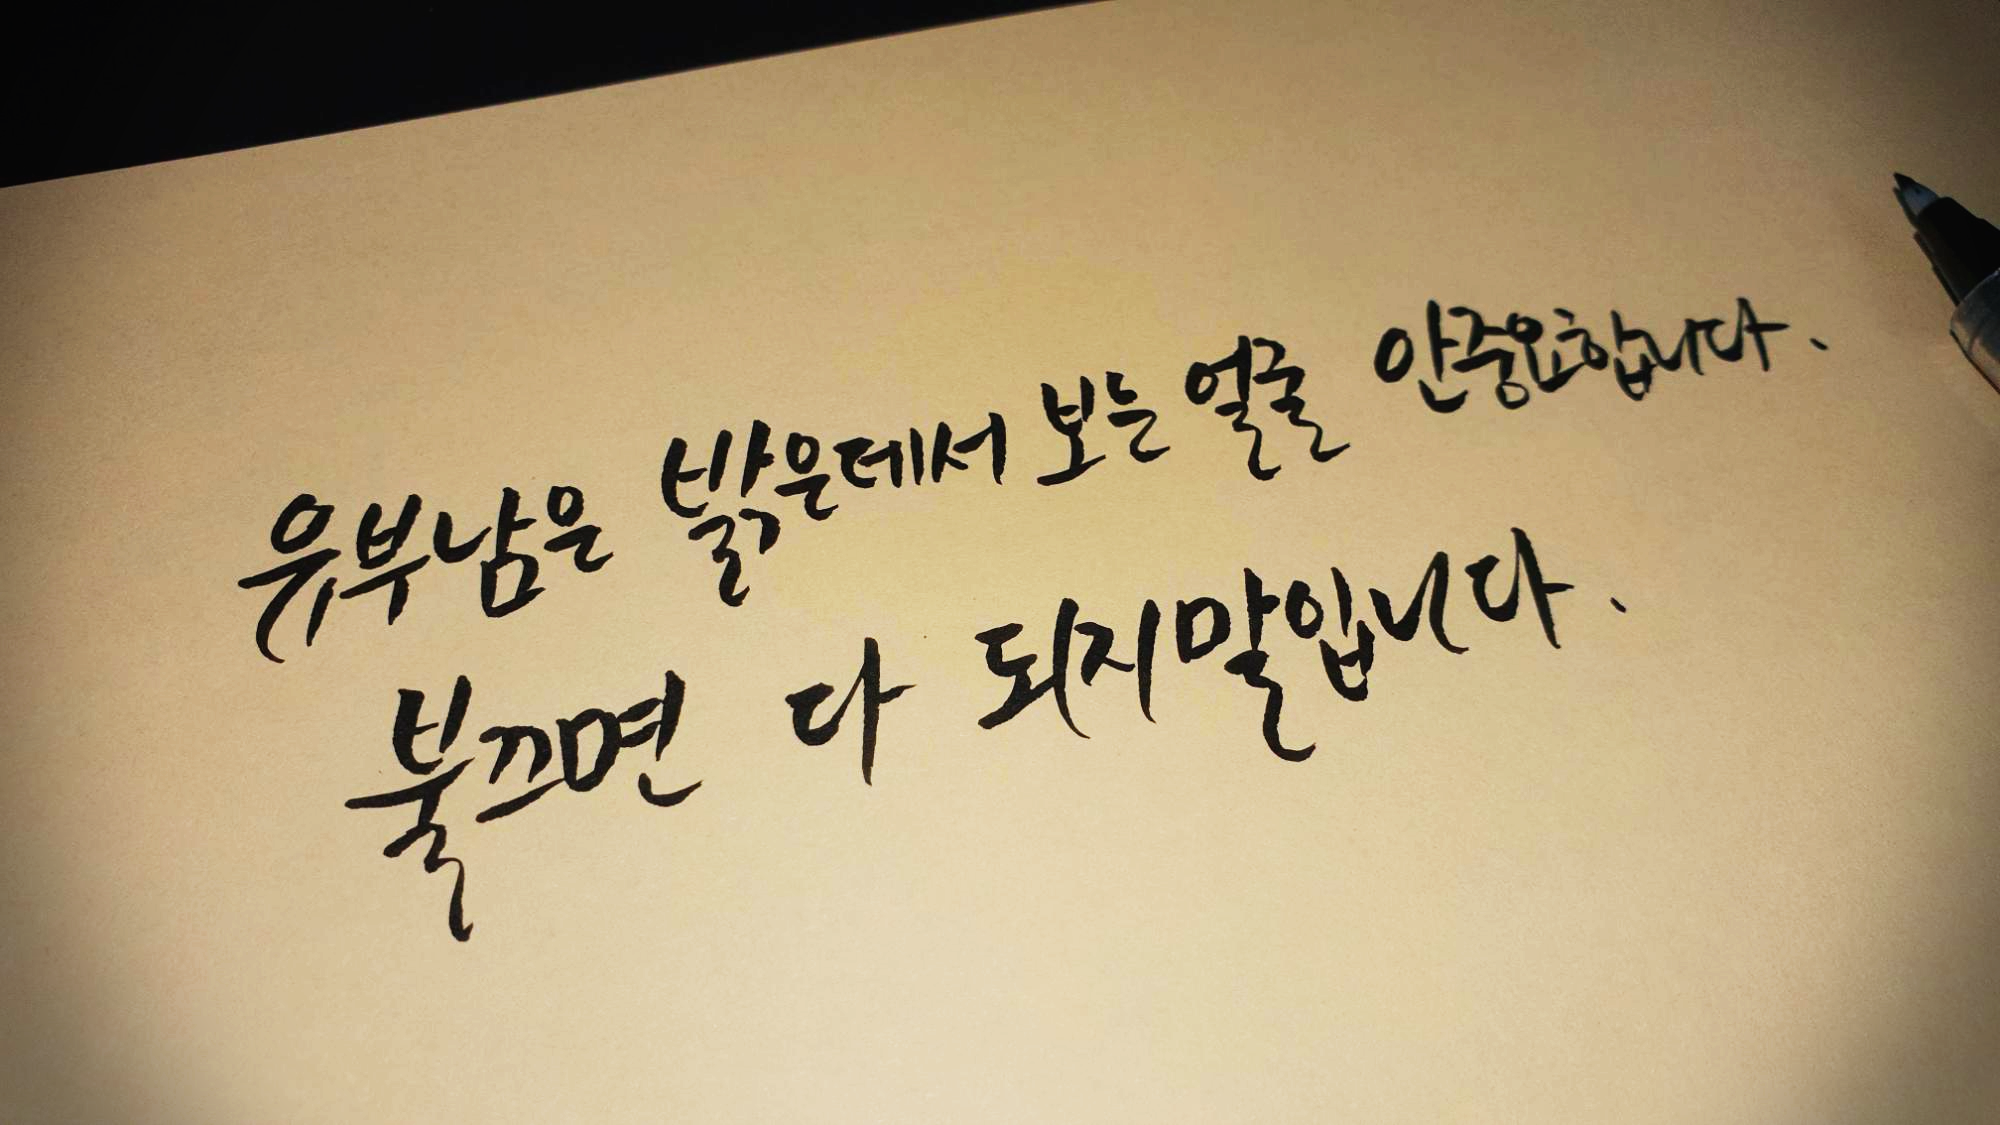 유부남은 밝은데서 보는 얼굴 안중요합니다.
불끄면 다 되지말입니다.